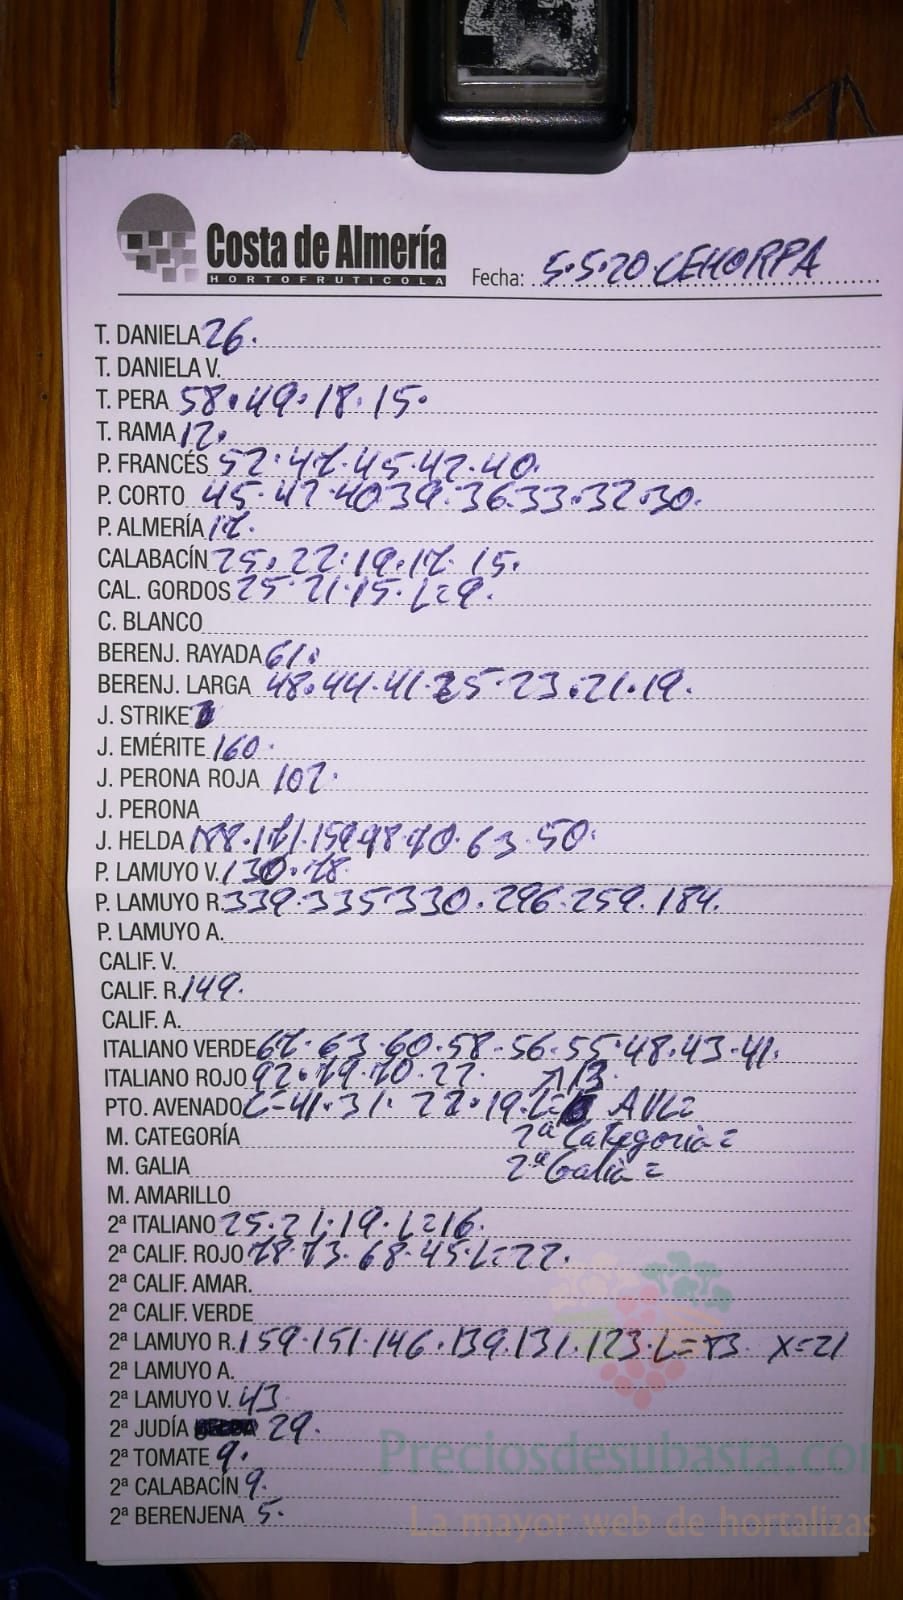 Costa de Almería
HORTOFRUTICOLA
Fecha: 5.5.20 CEHORPA
T. DANIELA 26.
T. DANIELA V.
T. PERA 58.49.18.15.
T. RAMA 12.
P. FRANCÉS 52.47.45.42.40.
P. CORTO 45.42.40 39.36.33.32.30.
P. ALMERÍA 17.
CALABACÍN 25.22.19.17.15.
CAL. GORDOS 25.21.15.L=9.
C. BLANCO
BERENJ. RAYADA 61.
BERENJ. LARGA 48.44.41.25.23.21.19.
J. STRIKE
J. EMÉRITE 160.
J. PERONA ROJA 102.
J. PERONA
J. HELDA 171.159 98 70.63.50.
P. LAMUYO V. 130.78.
P. LAMUYO R. 339.335 330.296.259.184.
P. LAMUYO A.
CALIF. V.
CALIF. R. 149.
CALIF. A.
ITALIANO VERDE 67.63.60.58.56.55.48.43.41.
ITALIANO ROJO 92.79.70.22. 13.
PTO. AVENADO L=41.31.22.19.L= AVL=
M. CATEGORÍA 2ª Categoria=
M. GALIA 2ª Galia=
M. AMARILLO
2ª ITALIANO 25.21.19.L=16.
2ª CALIF. ROJO 78.73.68.45.L=22.
2ª CALIF. AMAR.
2ª CALIF. VERDE
2ª LAMUYO R. 159.151.146.139.131.123.L=73. X=21
2ª LAMUYO A.
2ª LAMUYO V. 43
2ª JUDÍA 29.
2ª TOMATE 9.
2ª CALABACÍN 9.
2ª BERENJENA 5.
Preciosdesubasta.com
La mayor web de hortalizas